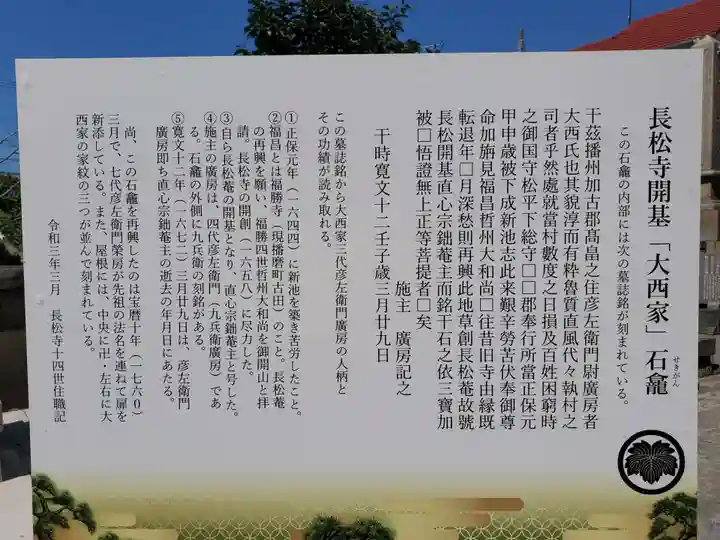 長松寺開基「大西家」石龕
せきがん
この石龕の内部には次の墓誌銘が刻まれている。
干茲播州加古郡髙畠之住彦左衛門尉廣房者
大西氏也其貌淳而有粋魯質直風代々執村之
司者乎然處就當村數度之日損及百姓困窮時
之御国守松平下総守□□郡奉行所當正保元
甲申歳被下成新池志此来艱辛勞苦伏奉御尊
命加旃見福昌哲州大和尚□往昔旧寺由縁既
転退年□月深愁則再興此地草創長松菴故號
長松開基直心宗鈯菴主而銘干石之依三寶加
被□悟證無上正等菩提者□矣
干時寛文十二壬子歳三月廿九日
施主 廣房記之
この墓誌銘から大西家三代彦左衛門廣房の人柄と
その功績が読み取れる。
①正保元年(一六四四)に新池を築き苦労したこと。
②福昌とは福勝寺(現播磨町古田)のこと。長松菴
の再興を願い、福勝四世哲州大和尚を御開山と拝
請。長松寺の開創(一六五八)に尽力した。
③自ら長松菴の開基となり、直心宗鈯菴主と号した。
④施主の廣房は、四代彦左衛門(九兵衛廣房)であ
る。石龕の外側に九兵衛の刻銘がある。
⑤寛文十二年(一六七二)三月廿九日は、彦左衛門
廣房即ち直心宗鈯菴主の逝去の年月日にあたる。
尚、この石龕を再興したのは宝暦十年(一七六〇)
三月で、七代彦左衛門榮房が先祖の法名を連ねて扉を
新添している。また、屋根には、中央に卍・左右に大
西家の家紋の三つが並んで刻まれている。
令和三年三月 長松寺十四世住職記